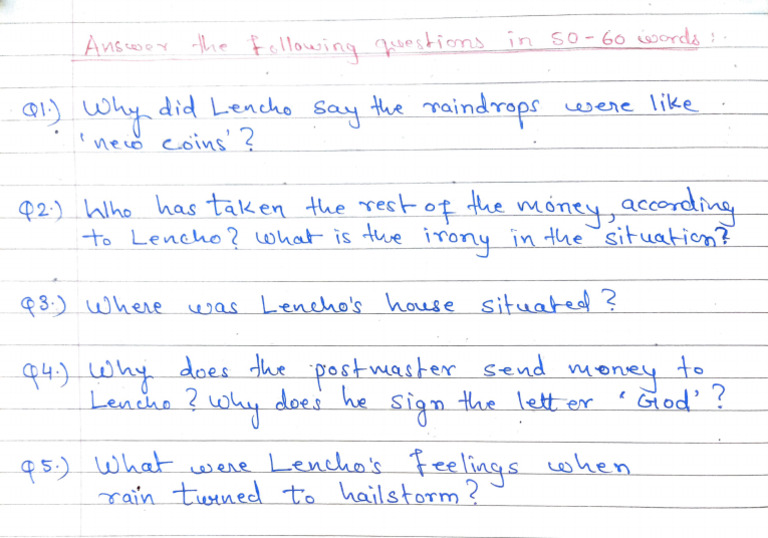 Answer the following questions in 50-60 words:-
Q1.) Why did Lencho say the raindrops were like
'new coins'?
Q2.) Who has taken the rest of the money, according
to Lencho? What is the irony in the situation?
Q3.) Where was Lencho's house situated?
Q4.) Why does the postmaster send money to
Lencho? Why does he sign the letter 'God'?
Q5.) What were Lencho's feelings when
rain turned to hailstorm?